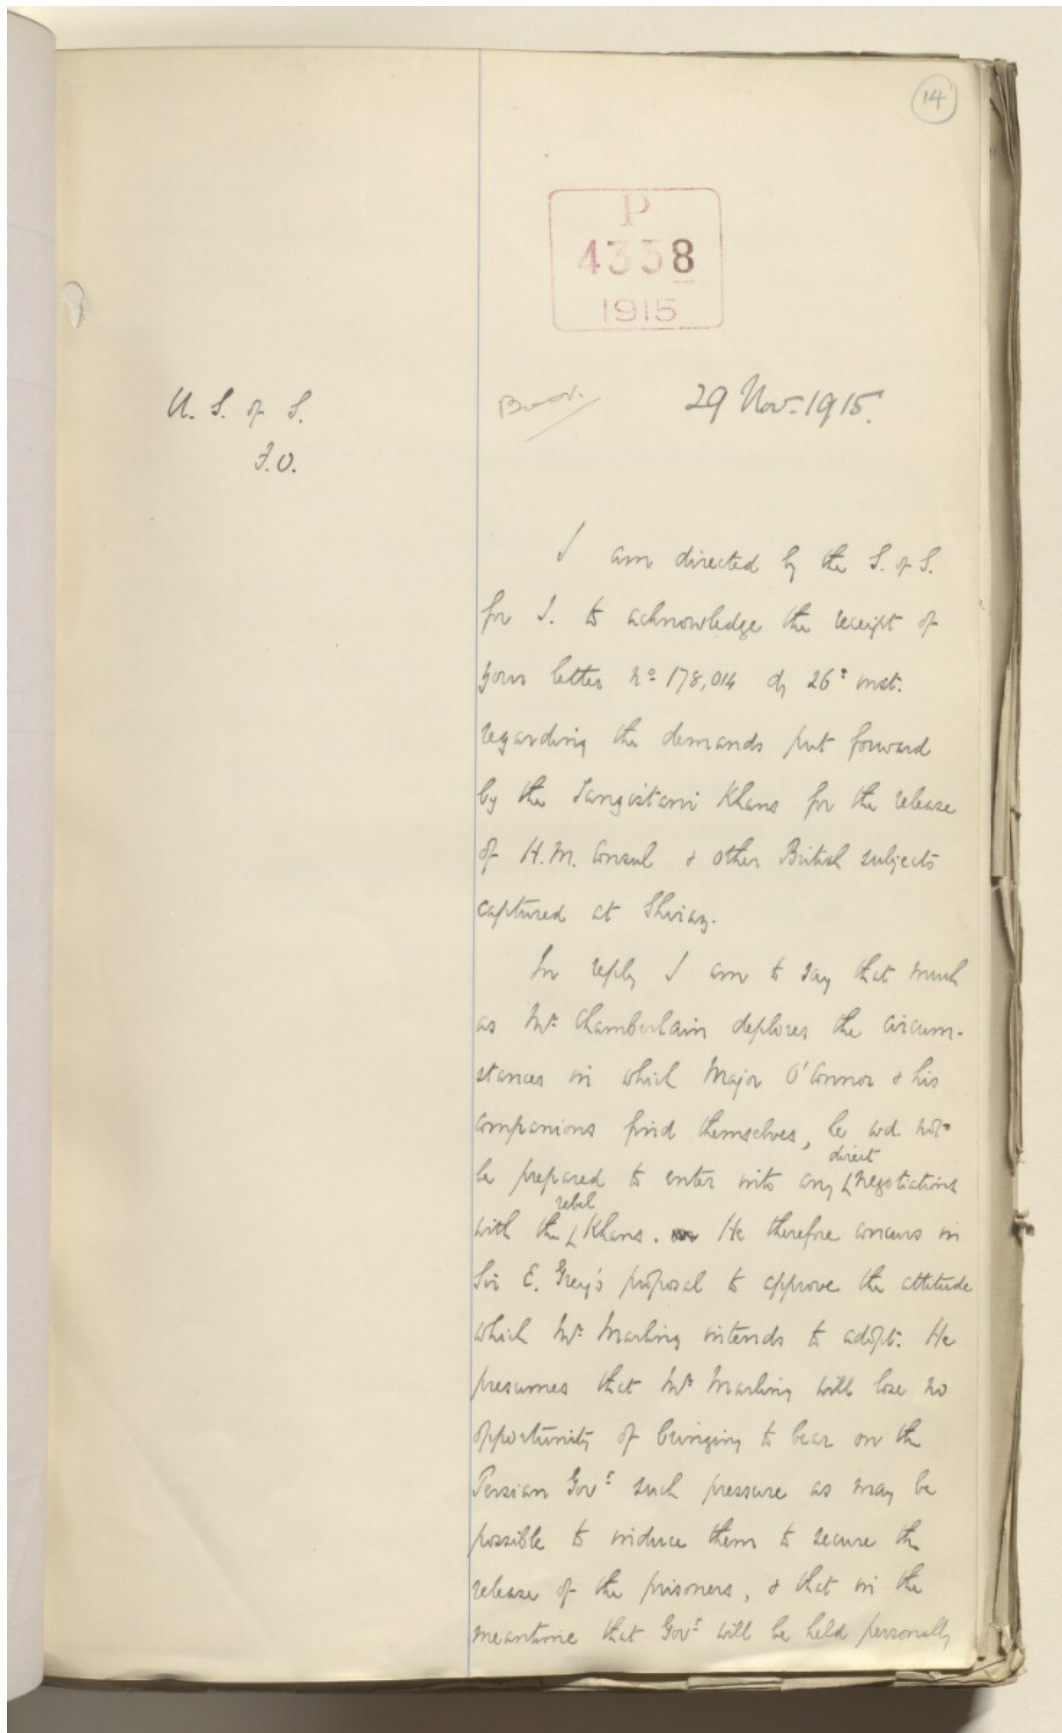 14
P
4358
1915
U. S. of S.
F.O.
29 Nov. 1915.
I am directed by the S. of S.
for I. to acknowledge the receipt of
your letter No 178,014 of 26th inst.
regarding the demands put forward
by the Tangistani Khans for the release
of H.M. Consul & other British subjects
captured at Shiraz.
In reply I am to say that much
as Mr Chamberlain deplores the circum-
stances in which Major O'Connor & his
companions find themselves, he wd. not
direct
be prepared to enter into any negotiations
rebel
with the Khans. He therefore concurs in
Sir E. Grey's proposal to approve the attitude
which Mr Marling intends to adopt. He
presumes that Mr Marling will lose no
opportunity of bringing to bear on the
Persian Govt such pressure as may be
possible to induce them to secure the
release of the prisoners, & that in the
meantime that Govt will be held personally